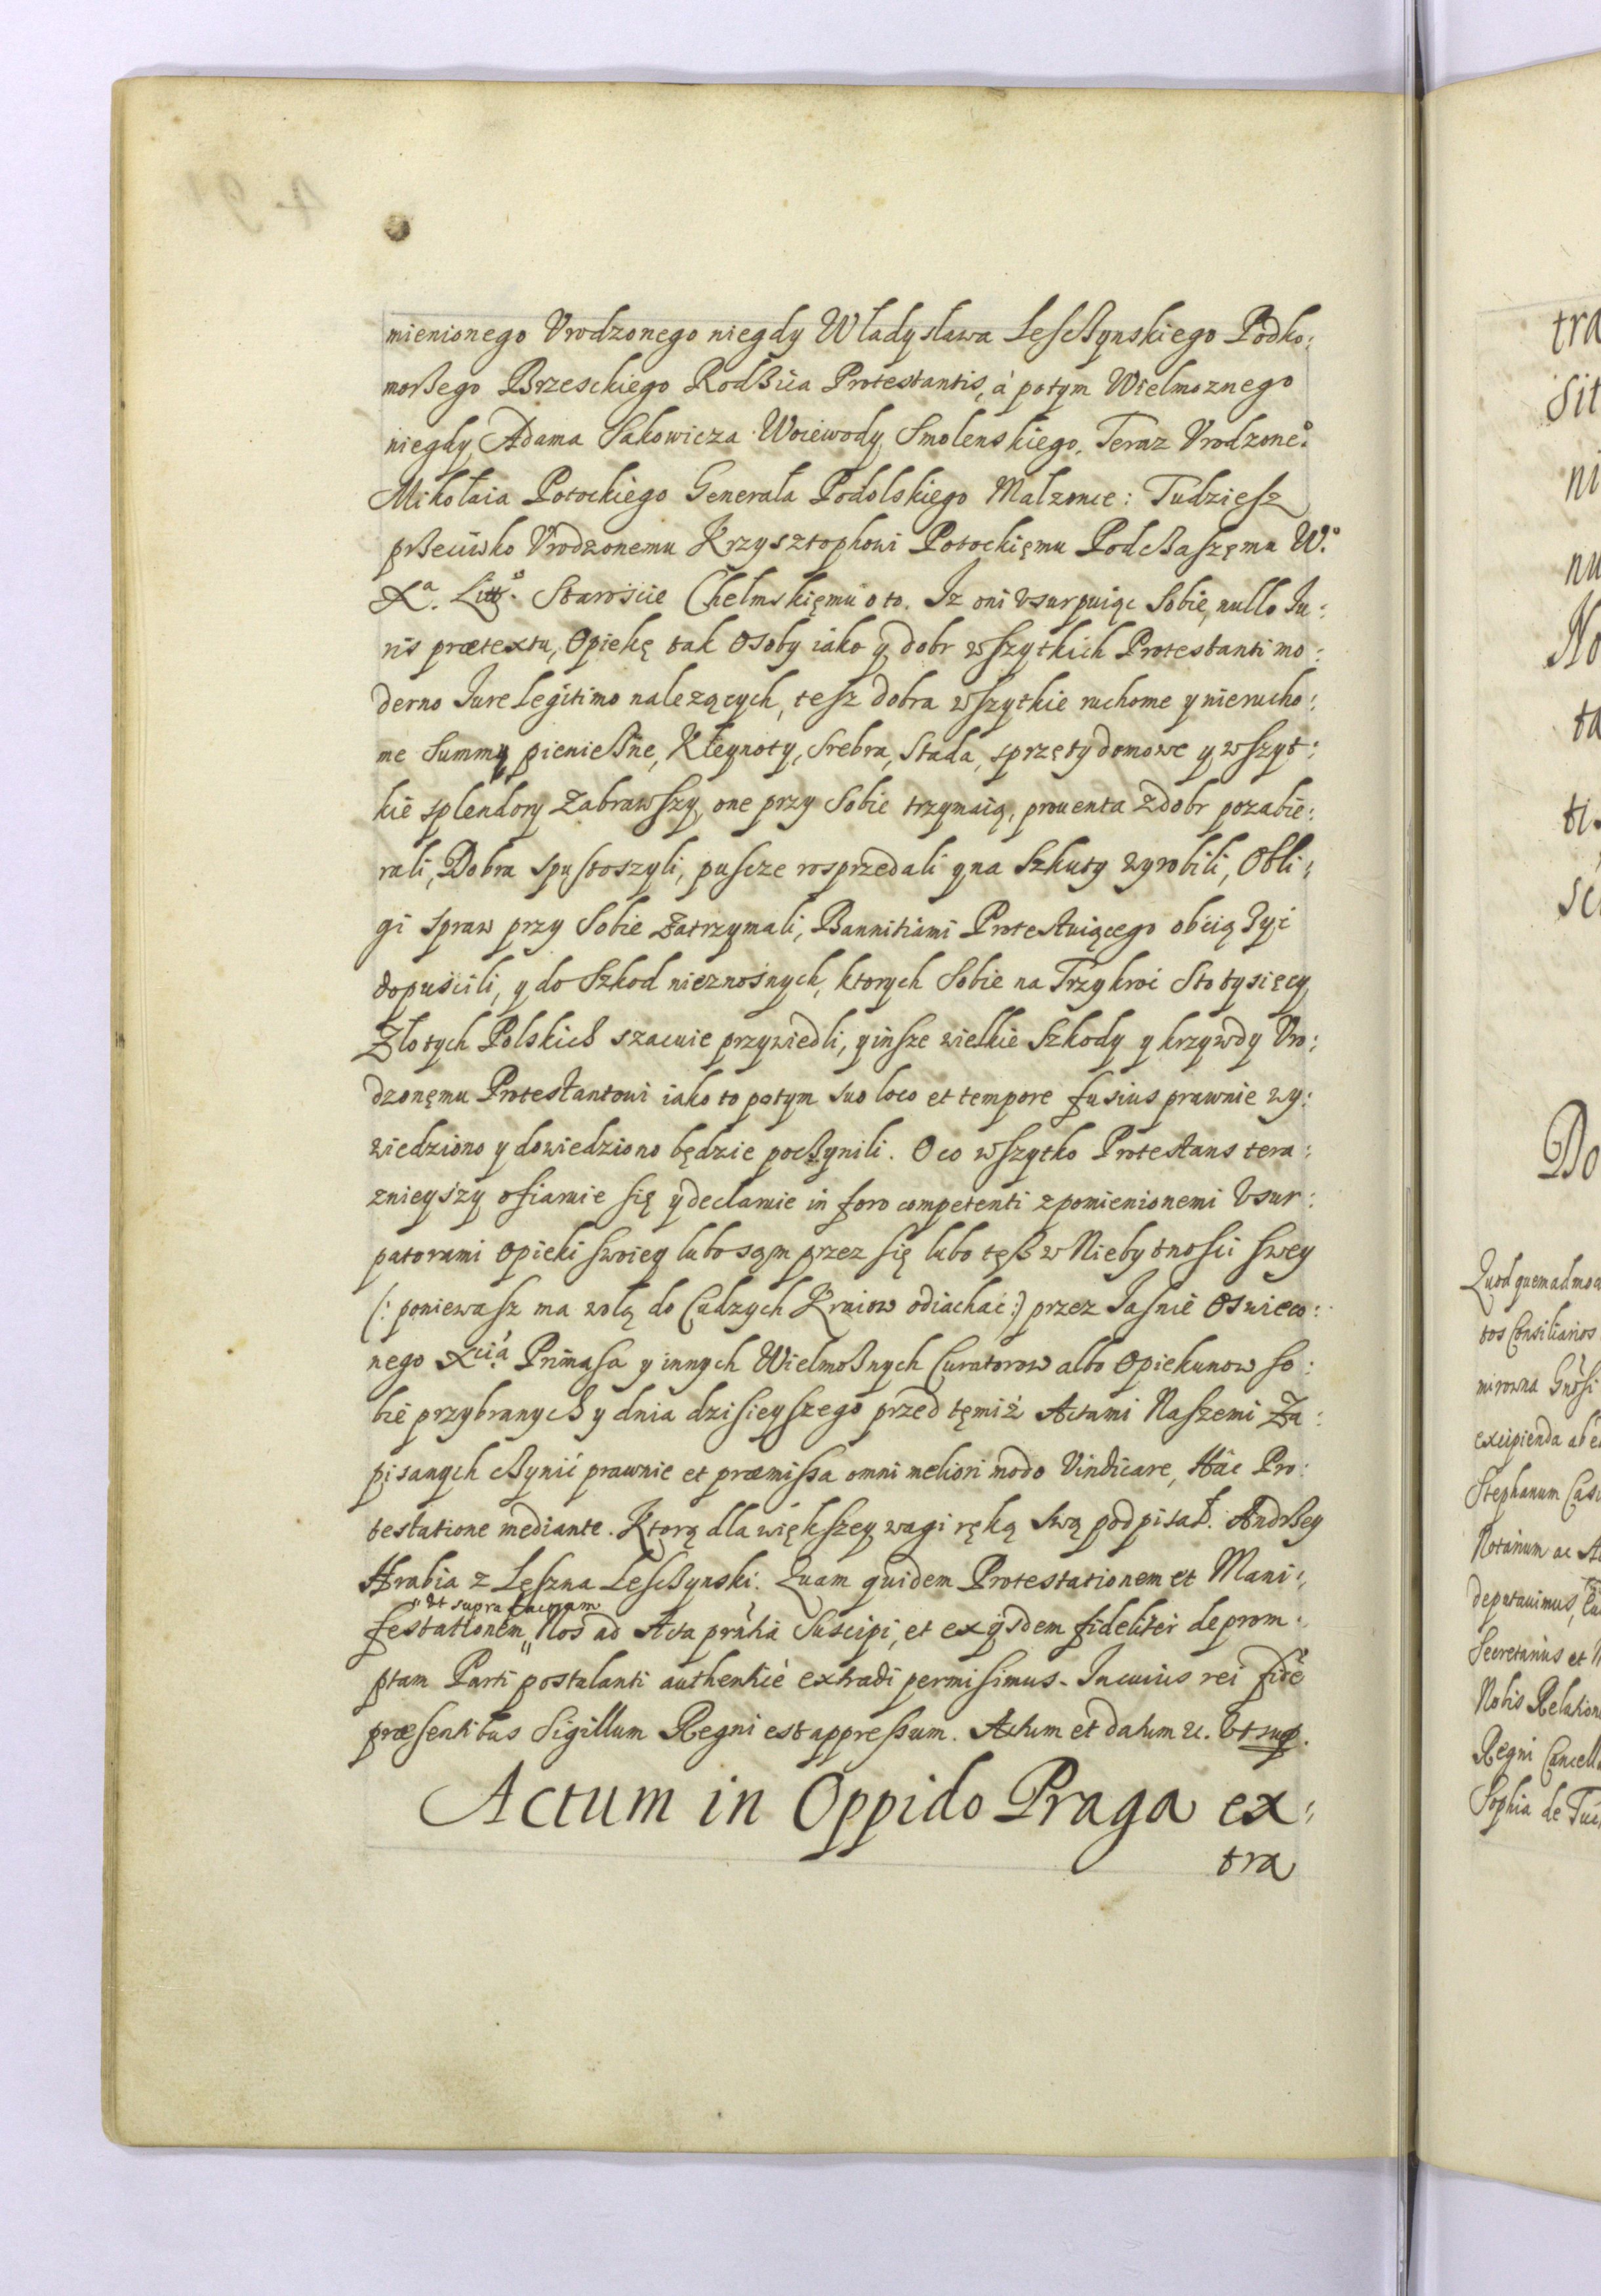 mienionego Vrodzonego niegdy Władysława Lescßynskiego Podko:
morßego Brzesckiego Rodßica Protestantis, á potym Wielmoznego
niegdy Adama Sakowicza Woiewody Smolenskiego, Teraz Vrodzone⁰:
Mikołaia Potockiego Generała Podolskiego Malzonce: Tudziesz
przeciwko Vrodzonemu Krzysztophowi Potockięmu Podcßaszęmu W.⁰
Xᵃ. Litt⁰. Starosćie Chelmskięmu o to. Iz oni vsurpuiąc Sobie, nullo Iu:
ris prætextu, Opiekę tak Osoby iako y dobr wszytkich Protestanti mo:
derno Iure legitimo nalezących, tesz dobra wszytkie ruchome y nierucho:
me Summy pienießne, Kleynoty, Srebra, Stada, sprzęty domowe y wszyt:
kie splendory Zabrawszy, one przy Sobie trzymaią, prouenta z dobr pozabie:
rali, Dobra spustoszyli, puscze rosprzedali y na Szkuty wyrobili, Obli:
gi spraw przy Sobie Zatrzymali, Bannitiami Protestuiącego obciążyć
dopuscili, y do Szkod nieznosnych, ktorych Sobie na Trzykroć Sto tysięcy
Złotych Polskich szacuie przywiedli, y insze wielkie Szkody y krzywdy Vro:
dzonęmu Protestantowi iako to potym suo loco et tempore fusius prawnie wy:
wiedziono y dowiedziono będzie pocßynili. O co wszytko Protestans tera:
znieyszy ofiaruie się y declaruie in foro competenti z pomienionemi Vsur:
patorami Opieki swoiey lubo sąm przez się lubo tęß w Niebytnosci swey
(: poniewasz ma wolą do Cudzych Kraiow odiachać :) przez Iasnie Oswieco:
nego Xciá Primasa y innych Wielmoßnych Curatorow albo Opiekunow so:
bie przybranych y dnia dzisieyszego przed tęmiż Actami Naszemi Za:
pisanych cßynić prawnie et præmissa omni meliori modo Vindicare, Hâc Pro:
testatione mediante. Ktorą dla większey wagi ręką swą podpisał. Andrßey
Hrabia z Lęszna Lescßynski. Quam quidem Protestationem et Mani:
" Ut supra factam
festationem " Nos ad Acta prńtia Suscipi, et ex ijsdem fideliter deprom:
ptam Parti postulanti authenticè extradi permisimus. In cuius rei fidē
præsentibus Sigillum Regni est appressum. Actum et datum &c. Ut sup.
Actum in Oppido Praga ex:
tra
tra
sit
ni
nu
No
ta
ti
Do
Quod quemadmo
tos Consiliarios
mirowna Gnosi
excipienda ab
Stephanum
Notarium ac
deputauimus,
Secretarius et
Nobis Relation
Regni Cancell
Sophia de